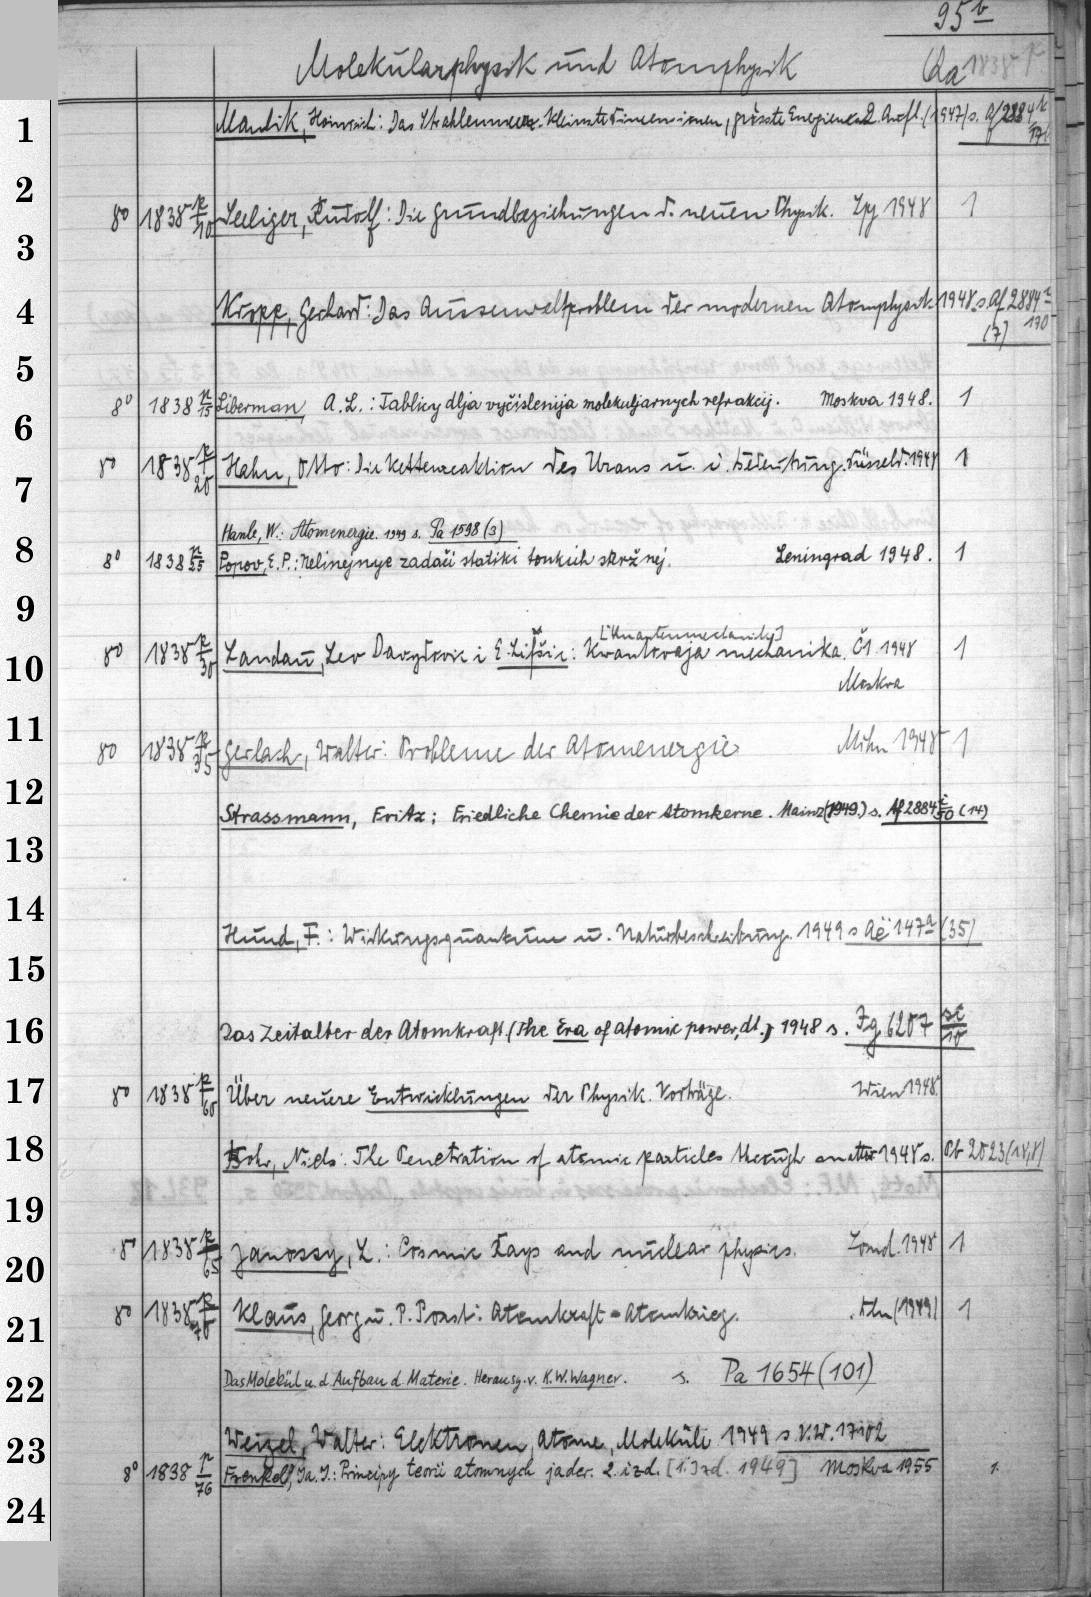 95 b
Molekularphysik und Atomphysik Qa 1838 p
1 Mandik, Heinrich: Das Strahlenmeer. Kleinste Dimensionen, grösste Energien 2. Aufl. (1947) s. Af 2884 k
2
8° 1838 p/10 Seeliger, Rudolf: Die Grundbeziehungen d. neuen Physik. Lpz 1948 1
3
4 Kropp, Gerhard: Das Aussenweltproblem der modernen Atomphysik 1948 s Af 2884 i
(7) 170
5
8° 1838 p/15 Liberman, A. L.: Tablicy dlja vyčislenija molekuljarnych refrakcij. Moskva 1948. 1
6
8° 1838 p/20 Hahn, Otto: Die Kettenreaktion des Urans u. i. Bedeutung. Düsseld. 1948 1
7
Hanle, W.: Atomenergie. 1949 s. Pa 1598 (3)
8 8° 1838 p/25 Popov, E. P.: Nelinejnye zadači statiki tonkich steržnej. Leningrad 1948. 1
9
[Quantenmechanik]
10 8° 1838 p/30 Landau, Lev Davydovic i E. Lifšic: Kwantovaja mechanika. Č1. 1948 1
Moskva
11
8° 1838 p/35 Gerlach, Walter: Probleme der Atomenergie Mchn 1948 1
12
Strassmann, Fritz; Friedliche Chemie der Atomkerne. Mainz (1949.) s. Af 2884 i/50 (14)
13
14
Hund, F.: Wirkungsquantum u. Naturbeschreibung. 1949 s Aë 147 a (35)
15
16 Das Zeitalter der Atomkraft (The Era of atomic power, dt.) 1948 s. Fg 6207 se/10
17 8° 1838 p/60 Über neuere Entwicklungen der Physik. Vorträge. Wien 1948.
18 Bohr, Niels: The Penetration of atomic particles through matter 1948 s. Ob 2023 (18,8)
19
8° 1838 p/65 Janossy, L.: Cosmic Rays and nuclear physics. Lond. 1948 1
20
8° 1838 p/70 Klaus, Georg u. P. Porst: Atomkraft = Atomkrieg. Bln (1949) 1
21
22 Das Molekül u. d. Aufbau d. Materie. Herausg. v. K. W. Wagner. s. Pa 1654 (101)
Weizel, Walter: Elektronen, Atome, Moleküle 1949 s. V.W. 17102
23
8° 1838 p/76 Frenkel', Ja. I.: Principy teorii atomnych jader. 2. izd. [1. Izd. 1949] Moskva 1955 1.
24